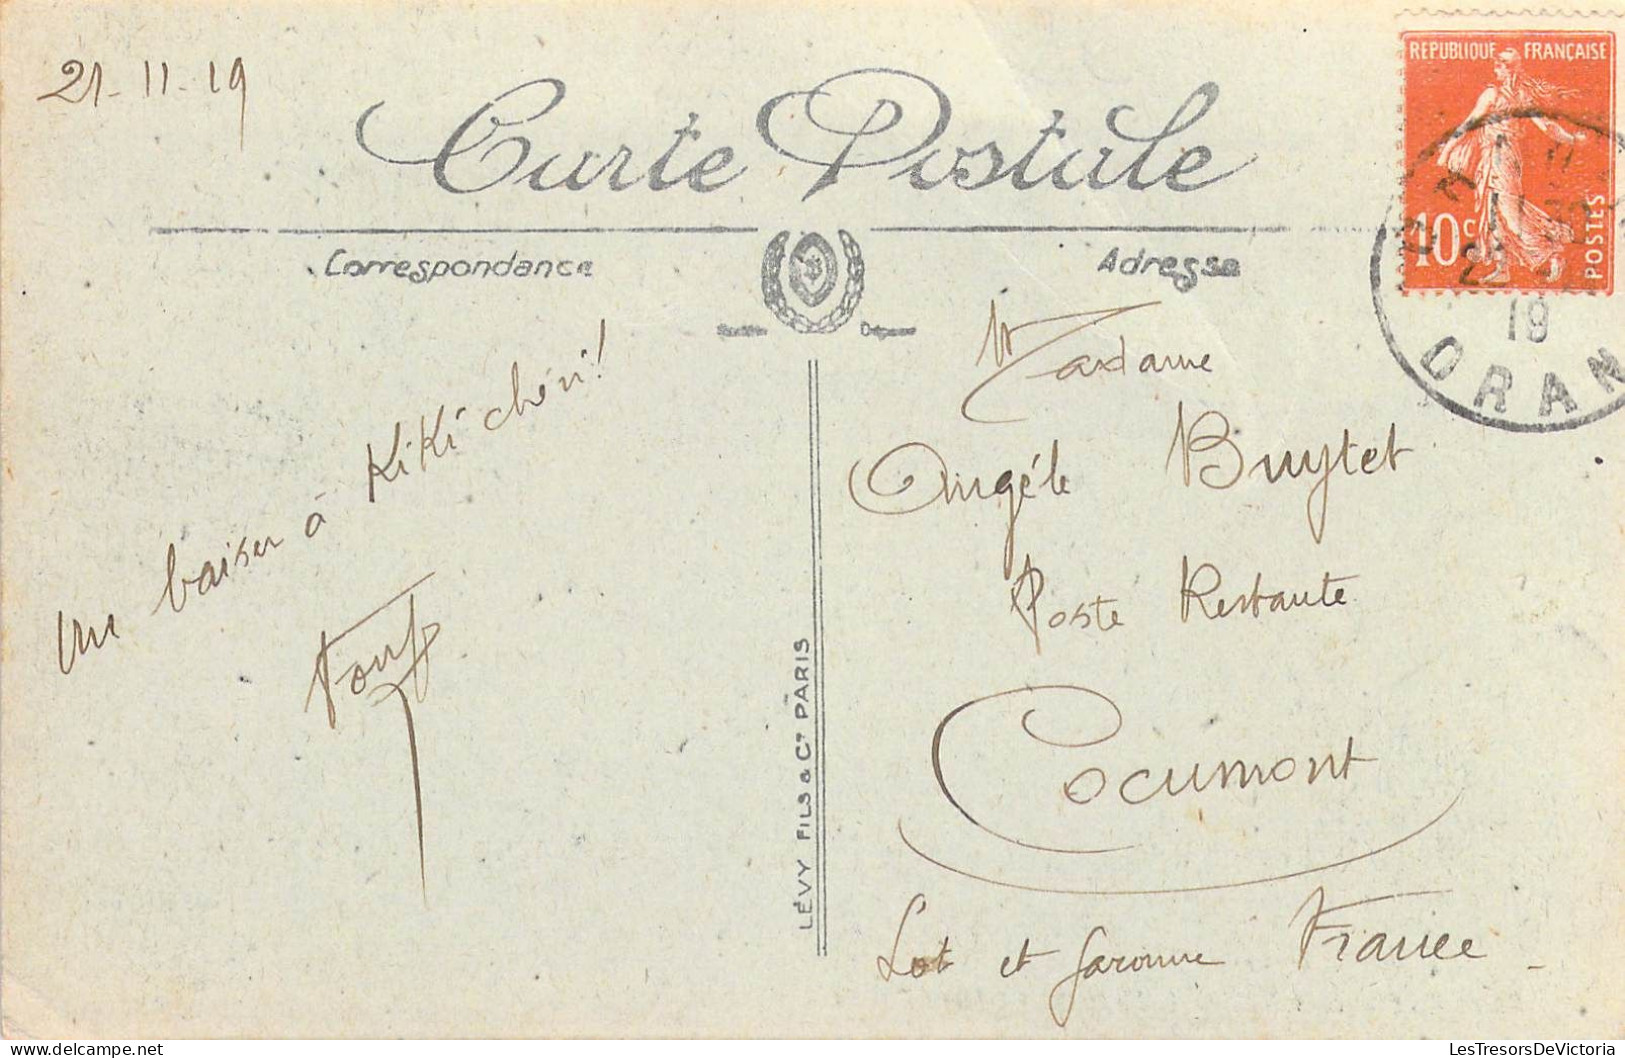 21-11-19
Carte Postale
Correspondance
Adresse
REPUBLIQUE FRANÇAISE
10c
POSTES
19
ORAN
Un baiser à KiKi chéri!
Madame
Angéle Buytet
Poste Restante
Cocumont
Lot et Garonne France
LÉVY FILS & Cie PARIS
LesTresorsDeVictoria